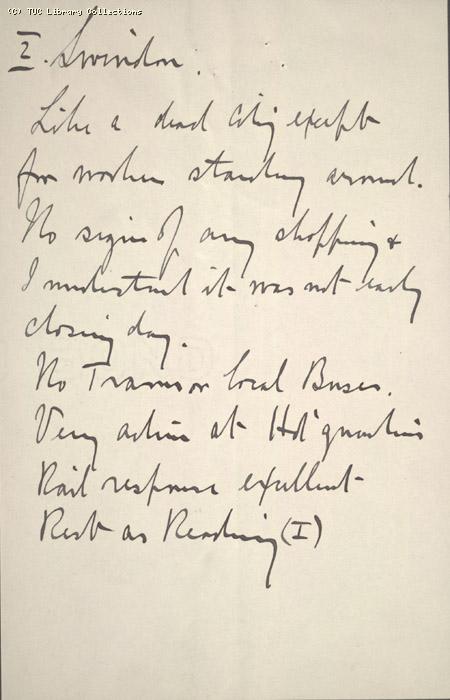 (C) TUC Library Collections
2. Swindon.
Like a dead city except
for workers standing around.
No sign of any shopping &
I understand it was not early
closing day.
No Trams or local Buses.
Very active at Hd'quarters
Rail response excellent
Rest as Reading (I)